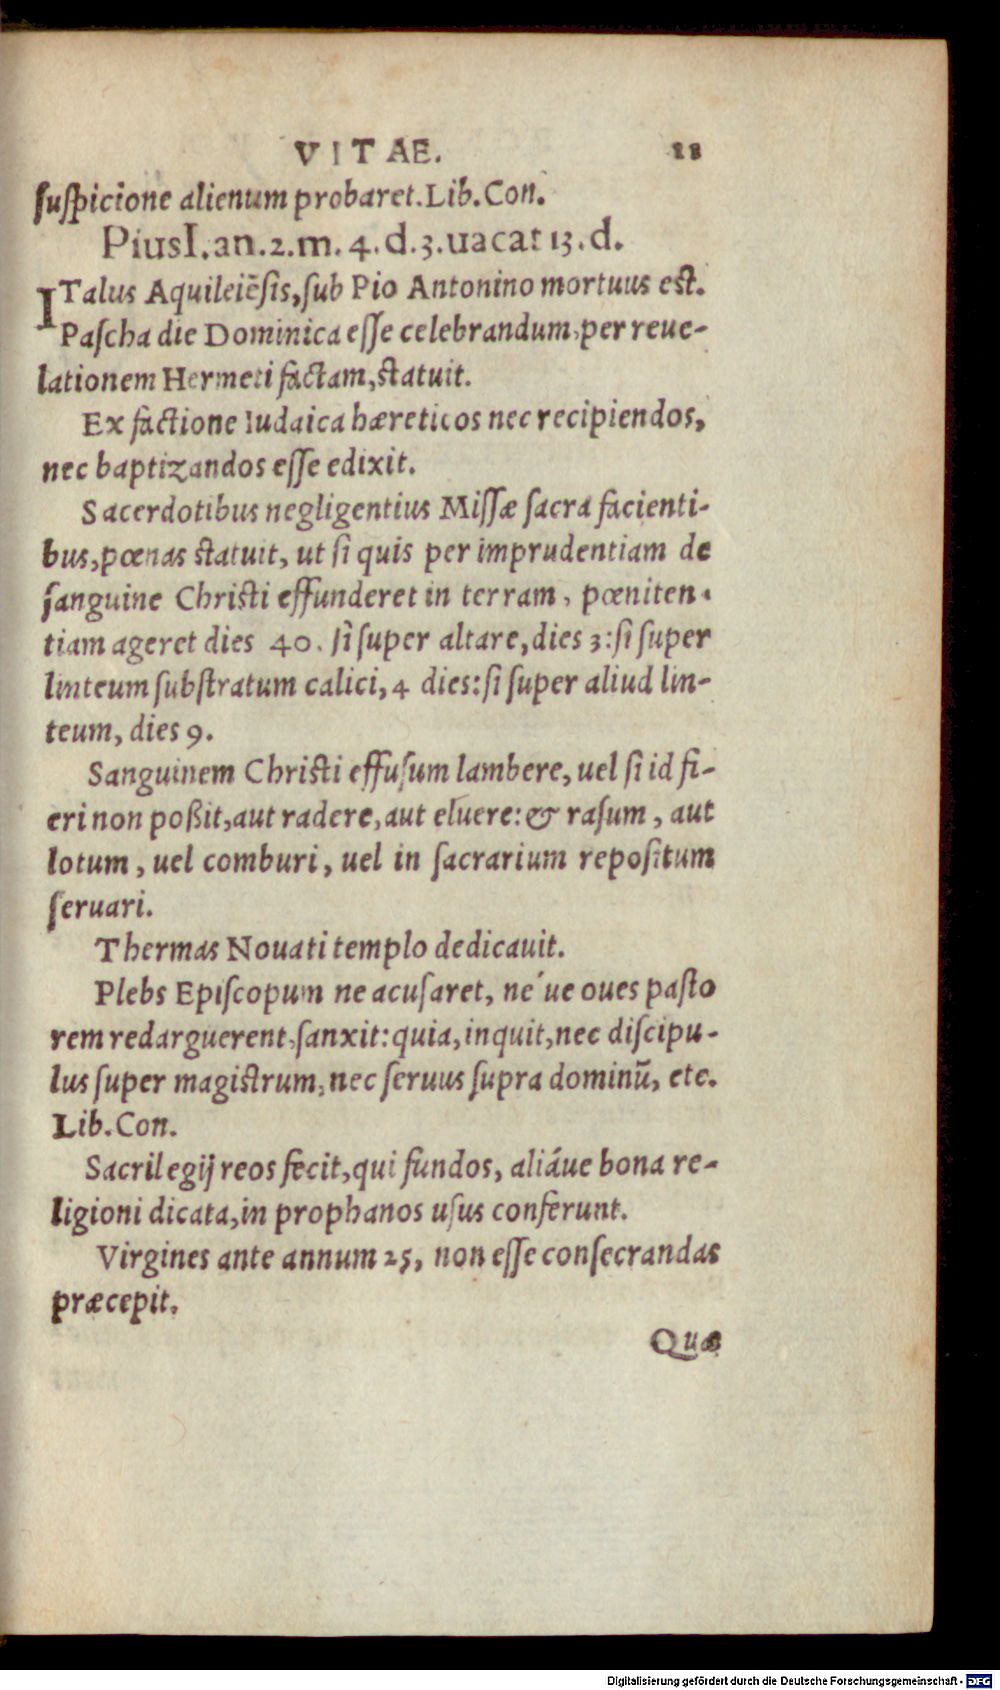 VITAE. 18
suſpicione alienum probaret. Lib. Con.
PiusI. an. 2. m. 4. d. 3. uacat 13. d.
ITalus Aquileiẽſis, ſub Pio Antonino mortuus est.
Paſcha die Dominica eſſe celebrandum, per reue-
lationem Hermeti factam, statuit.
Ex factione Iudaica hæreticos nec recipiendos,
nec baptizandos eſſe edixit.
Sacerdotibus negligentius Miſſæ ſacra facienti-
bus, pœnas statuit, ut ſi quis per imprudentiam de
ſanguine Christi effunderet in terram, pœniten-
tiam ageret dies 40. ſi ſuper altare, dies 3: ſi ſuper
linteum ſubſtratum calici, 4 dies: ſi ſuper aliud lin-
teum, dies 9.
Sanguinem Christi effuſum lambere, uel ſi id fi-
eri non poßit, aut radere, aut eluere: & raſum, aut
lotum, uel comburi, uel in ſacrarium repoſitum
ſeruari.
Thermas Nouati templo dedicauit.
Plebs Epiſcopum ne acuſaret, né ue oues paſto
rem redarguerent, ſanxit: quia, inquit, nec diſcipu-
lus ſuper magistrum, nec ſeruus ſupra dominũ, etc.
Lib. Con.
Sacrilegij reos fecit, qui fundos, aliáue bona re-
ligioni dicata, in prophanos uſus conferunt.
Virgines ante annum 25, non eſſe conſecrandas
præcepit.
Quæ
Digitalisierung gefördert durch die Deutsche Forschungsgemeinschaft - DFG